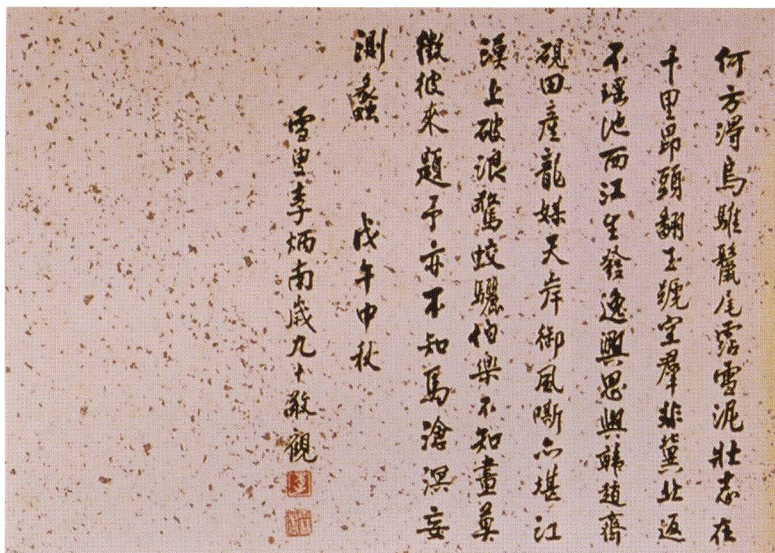 何方得烏騅鬣尾霑雪泥壯志在
千里昂頭翻玉蹏空羣非冀北返
不瑤池西江生發逸興思與韓趙齊
硯田產龍媒天岸御風嘶亦堪江
漢上破浪驚蛟驪伯樂不知畫莫
徵彼來題予亦不知馬滄溟妄
測蠡 戊午中秋
雪叟李炳南歲九十敬觀